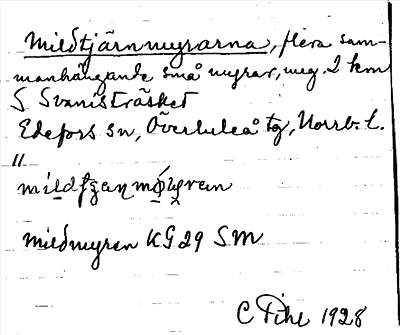 Mildtjärnmyrarna, flera sam-
manhängande små myrar, ung. 2 km
S Svanisträsket
Edefors sn, Överluleå tg, Norrb. l.
"
Mildmyren KG 29 SM
C Pihl 1928